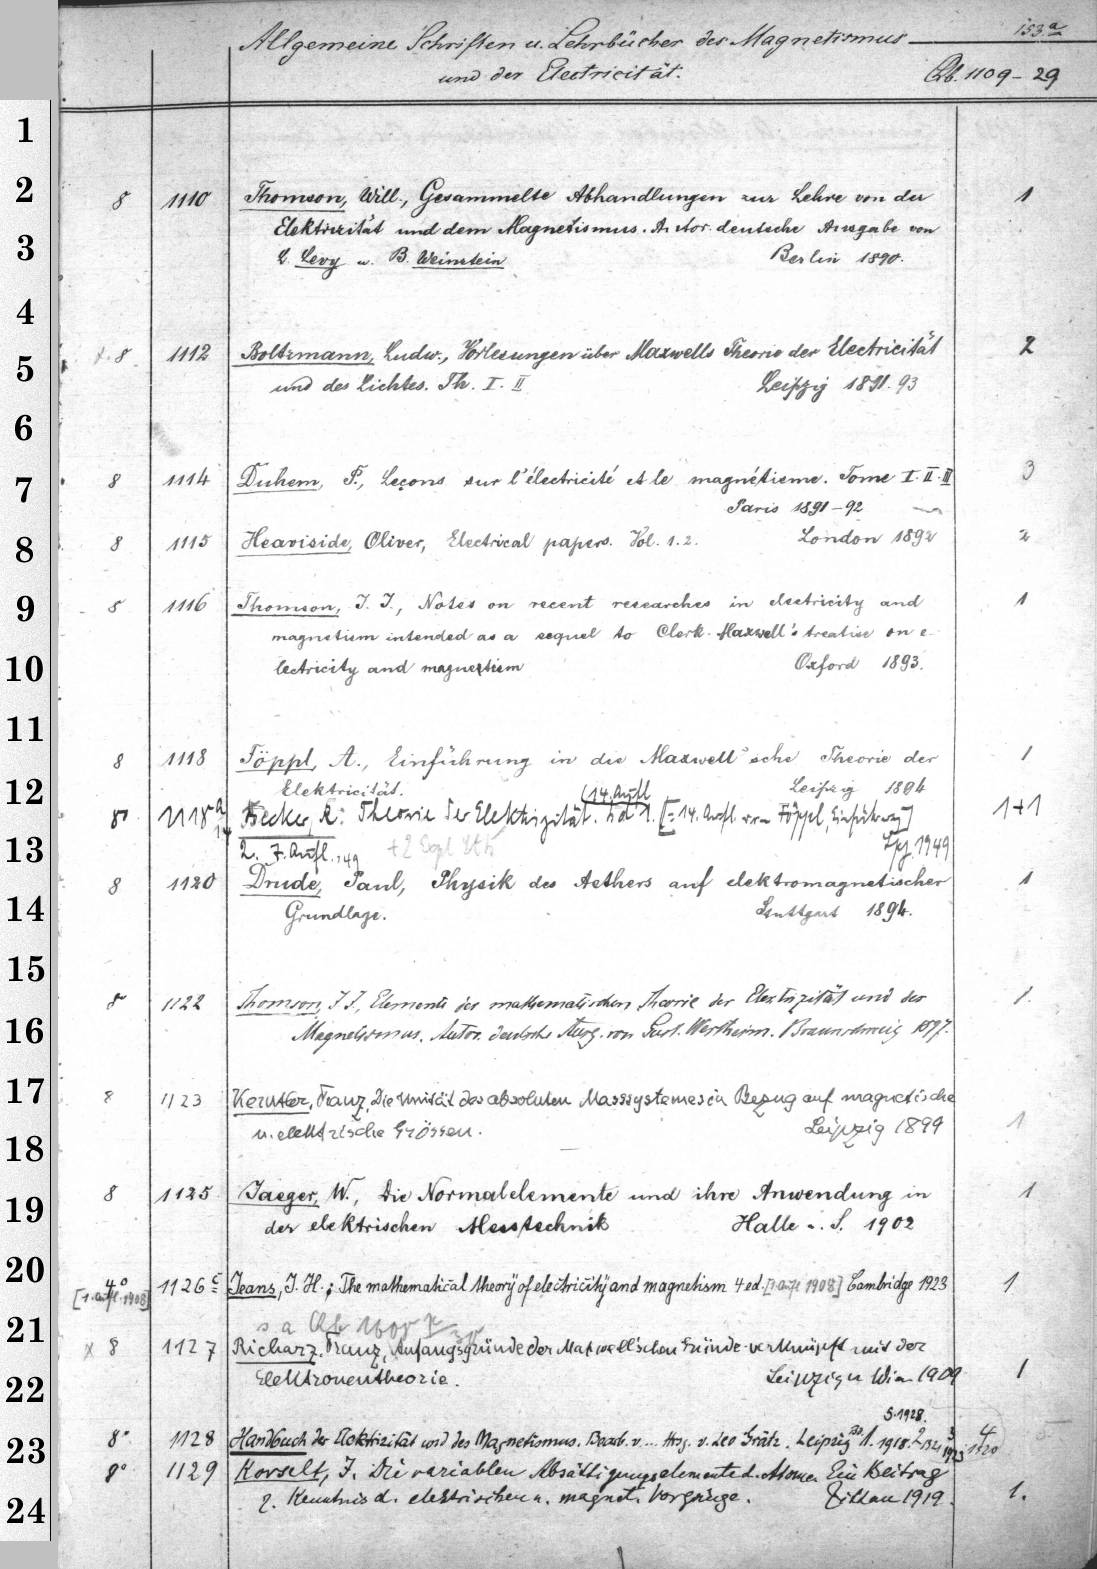 Allgemeine Schriften u. Lehrbücher des Magnetismus 153a
und der Electricität. Qb. 1109-29
1
2 8 1110 Thomson, Will., Gesammelte Abhandlungen zur Lehre von der 1
Elektrizität und dem Magnetismus. Autor. deutsche Ausgabe von
3 L. Levy u. B. Weinstein Berlin 1890.
4
5 x 8 1112 Boltzmann, Ludw., Vorlesungen über Maxwells Theorie der Electricität 2
und des Lichtes. Th. I. II Leipzig 1891. 93
6
7 8 1114 Duhem, P., Leçons sur l'électricité et le magnétisme. Tome I. II. III 3
Paris 1891-92
8 8 1115 Heaviside, Oliver, Electrical papers. Vol. 1. 2. London 1892 2
9 8 1116 Thomson, J. J., Notes on recent researches in electricity and 1
magnetism intended as a sequel to Clerk-Maxwell's treatise on e-
10 lectricity and magnetism Oxford 1893.
11
8 1118 Föppl, A., Einführung in die Maxwell'sche Theorie der 1
12 Elektricität. Leipzig 1894
(14. Aufl
8° 1118a Becker, R: Theorie der Elektrizität. Bd 1. [= 14. Aufl. von Föppl, Einführung] 1+1
14
13 2. 7. Aufl. '49 +2 Expl Lpz. 1949
8 1120 Drude, Paul, Physik des Aethers auf elektromagnetischer 1
14 Grundlage. Stuttgart 1894.
15
8 1122 Thomson, J. J., Elemente der mathematischen Theorie der Elektrizität und des 1.
16 Magnetismus. Autor. deutsche Ausg. von Gust. Wertheim. Braunschweig 1897.
17 8 1123 Kerntler, Franz, Die Unität des absoluten Masssystemes in Bezug auf magnetische
18 u. elektrische Grössen. Leipzig 1899 1
19 8 1125 Jaeger, W., Die Normalelemente und ihre Anwendung in 1
der elektrischen Messtechnik Halle a. S. 1902
20 4° 1126c Jeans, J. H.; The mathematical theory of electricity and magnetism 4 ed. [1. Aufl 1908] Cambridge 1923 1
[1. Aufl. 1908]
21 s. a Qb
x 8 1127 Richarz, Franz, Anfangsgründe der Maxwell'schen Gründe verknüpft mit der
22 Elektronentheorie. Leipzig u Wien 1909 1
5. 1928.
23 8° 1128 Handbuch der Elektrizität und des Magnetismus. Bearb. v. ... Hrsg. v. Leo Grätz. Leipzig Bd. 1. 1918. 2 1921 3 1923 4 1920
8° 1129 Korselt, J. Die variablen Absättigungselemente d. Atome. Ein Beitrag
24 z. Kenntnis d. elektrischen u. magnet. Vorgänge. Zittau 1919. 1.